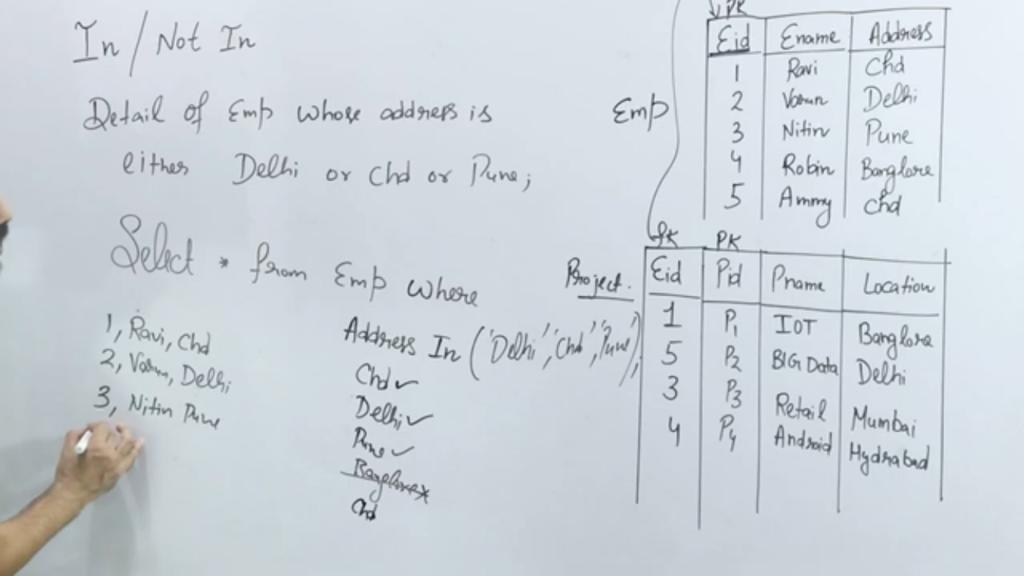 In / Not In
Detail of Emp whose address is
either Delhi or Chd or Pune;
Select * from Emp where
Address In ('Delhi','Chd','Pune');
Chd ✓
Delhi ✓
Pune ✓
Banglore ×
Chd
1, Ravi, Chd
2, Varun, Delhi
3, Nitin Pune
Emp
PK
Eid Ename Address
1 Ravi Chd
2 Varun Delhi
3 Nitin Pune
4 Robin Banglore
5 Ammy Chd
Project.
fK PK
Eid Pid Pname Location
1 P1 IOT Banglore
5 P2 BIG Data Delhi
3 P3 Retail Mumbai
4 P4 Android Hydrabad